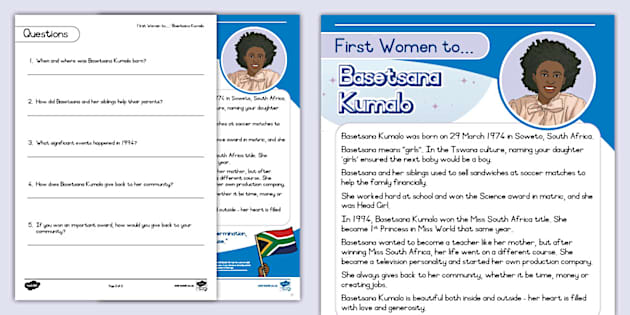 First Women to... Basetsana Kumalo
Questions
1. When and where was Basetsana Kumalo born?
2. How did Basetsana and her siblings help their parents?
3. What significant events happened in 1994?
4. How does Basetsana Kumalo give back to her community?
5. If you won an important award, how would you give back to your
community?
4 in Soweto, South Africa.
ure, naming your daughter
at soccer matches to
ce award in matric, and she
outh Africa title. She
r mother, but after
a different course. She
er own production company.
whether it be time, money or
d outside - her heart is filled
ermination,
First Women to...
Basetsana
Kumalo
Basetsana Kumalo was born on 29 March 1974 in Soweto, South Africa.
Basetsana means "girls". In the Tswana culture, naming your daughter
'girls' ensured the next baby would be a boy.
Basetsana and her siblings used to sell sandwiches at soccer matches to
help the family financially.
She worked hard at school and won the Science award in matric, and she
was Head Girl.
In 1994, Basetsana Kumalo won the Miss South Africa title. She
became 1st Princess in Miss World that same year.
Basetsana wanted to become a teacher like her mother, but after
winning Miss South Africa, her life went on a different course. She
became a television personality and started her own production company.
She always gives back to her community, whether it be time, money or
creating jobs.
Basetsana Kumalo is beautiful both inside and outside - her heart is filled
with love and generosity.